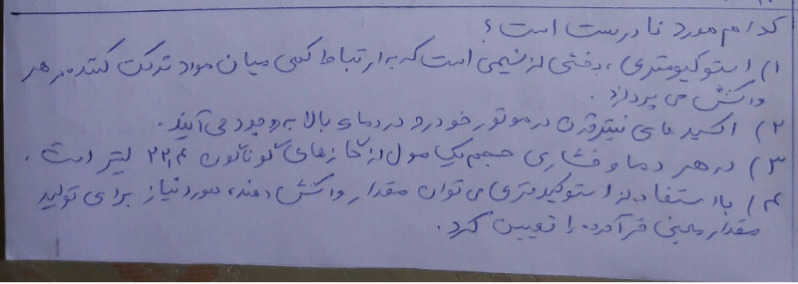 کدام مورد نادرست است؟
۱) استوکیومتری، بخشی از شیمی است که به ارتباط کمی میان مواد شرکت کننده در هر
واکنش می پردازد.
۲) اکسید های نیتروژن در موتور خودرو در دمای بالا به وجود می آیند.
۳) در هر دما و فشاری حجم یک مول از گازهای گوناگون ۲۲,۴ لیتر است.
۴) با استفاده از استوکیومتری می توان مقدار واکنش دهنده مورد نیاز برای تولید
مقدار معینی فرآورده را تعیین کرد.